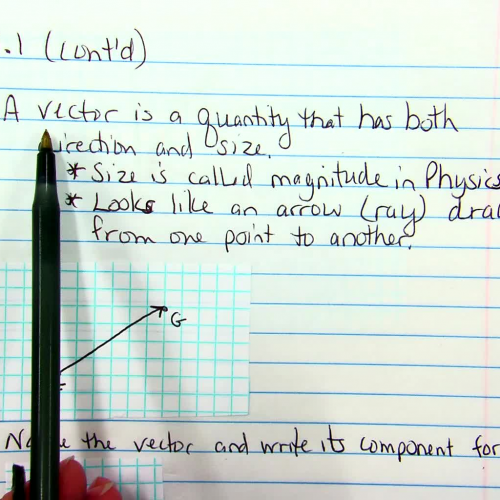 .1 (cont'd)
A vector is a quantity that has both
direction and size.
* Size is called magnitude in Physics
* Looks like an arrow (ray)
from one point to another.
G
the vector and write its component